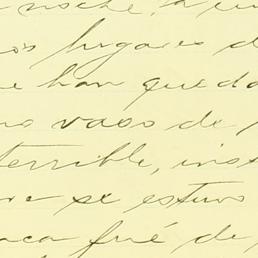 noche, a
lugares d
han queda
vaso de
terrible, ins
se estuvo
fué de